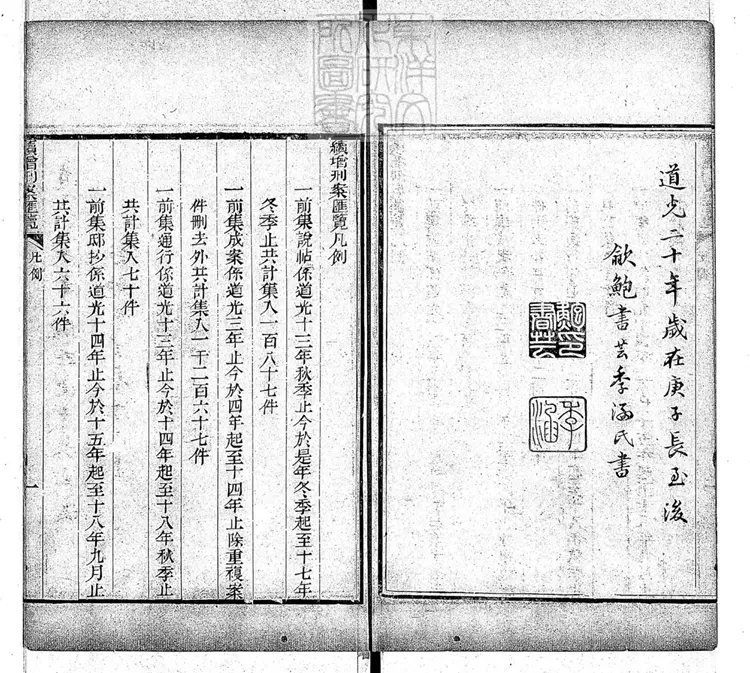 道光二十年歲在庚子長至後
歙鮑書芸季涵氏書
鮑印書芸
季涵
續增刑案匯覽凡例
一前集說帖係道光十三年秋季止今於是年冬季起至十七年
冬季止共計集入一百八十七件
一前集成案係道光三年止今於四年起至十四年止除重複案
件刪去外共計集入一千二百六十七件
一前集通行係道光十三年止今於十四年起至十八年秋季止
共計集入七十件
一前集邸抄係道光十四年止今於十五年起至十八年九月止
共計集入六十六件
續增刑案匯覽
凡例
一
東洋文化研究所圖書